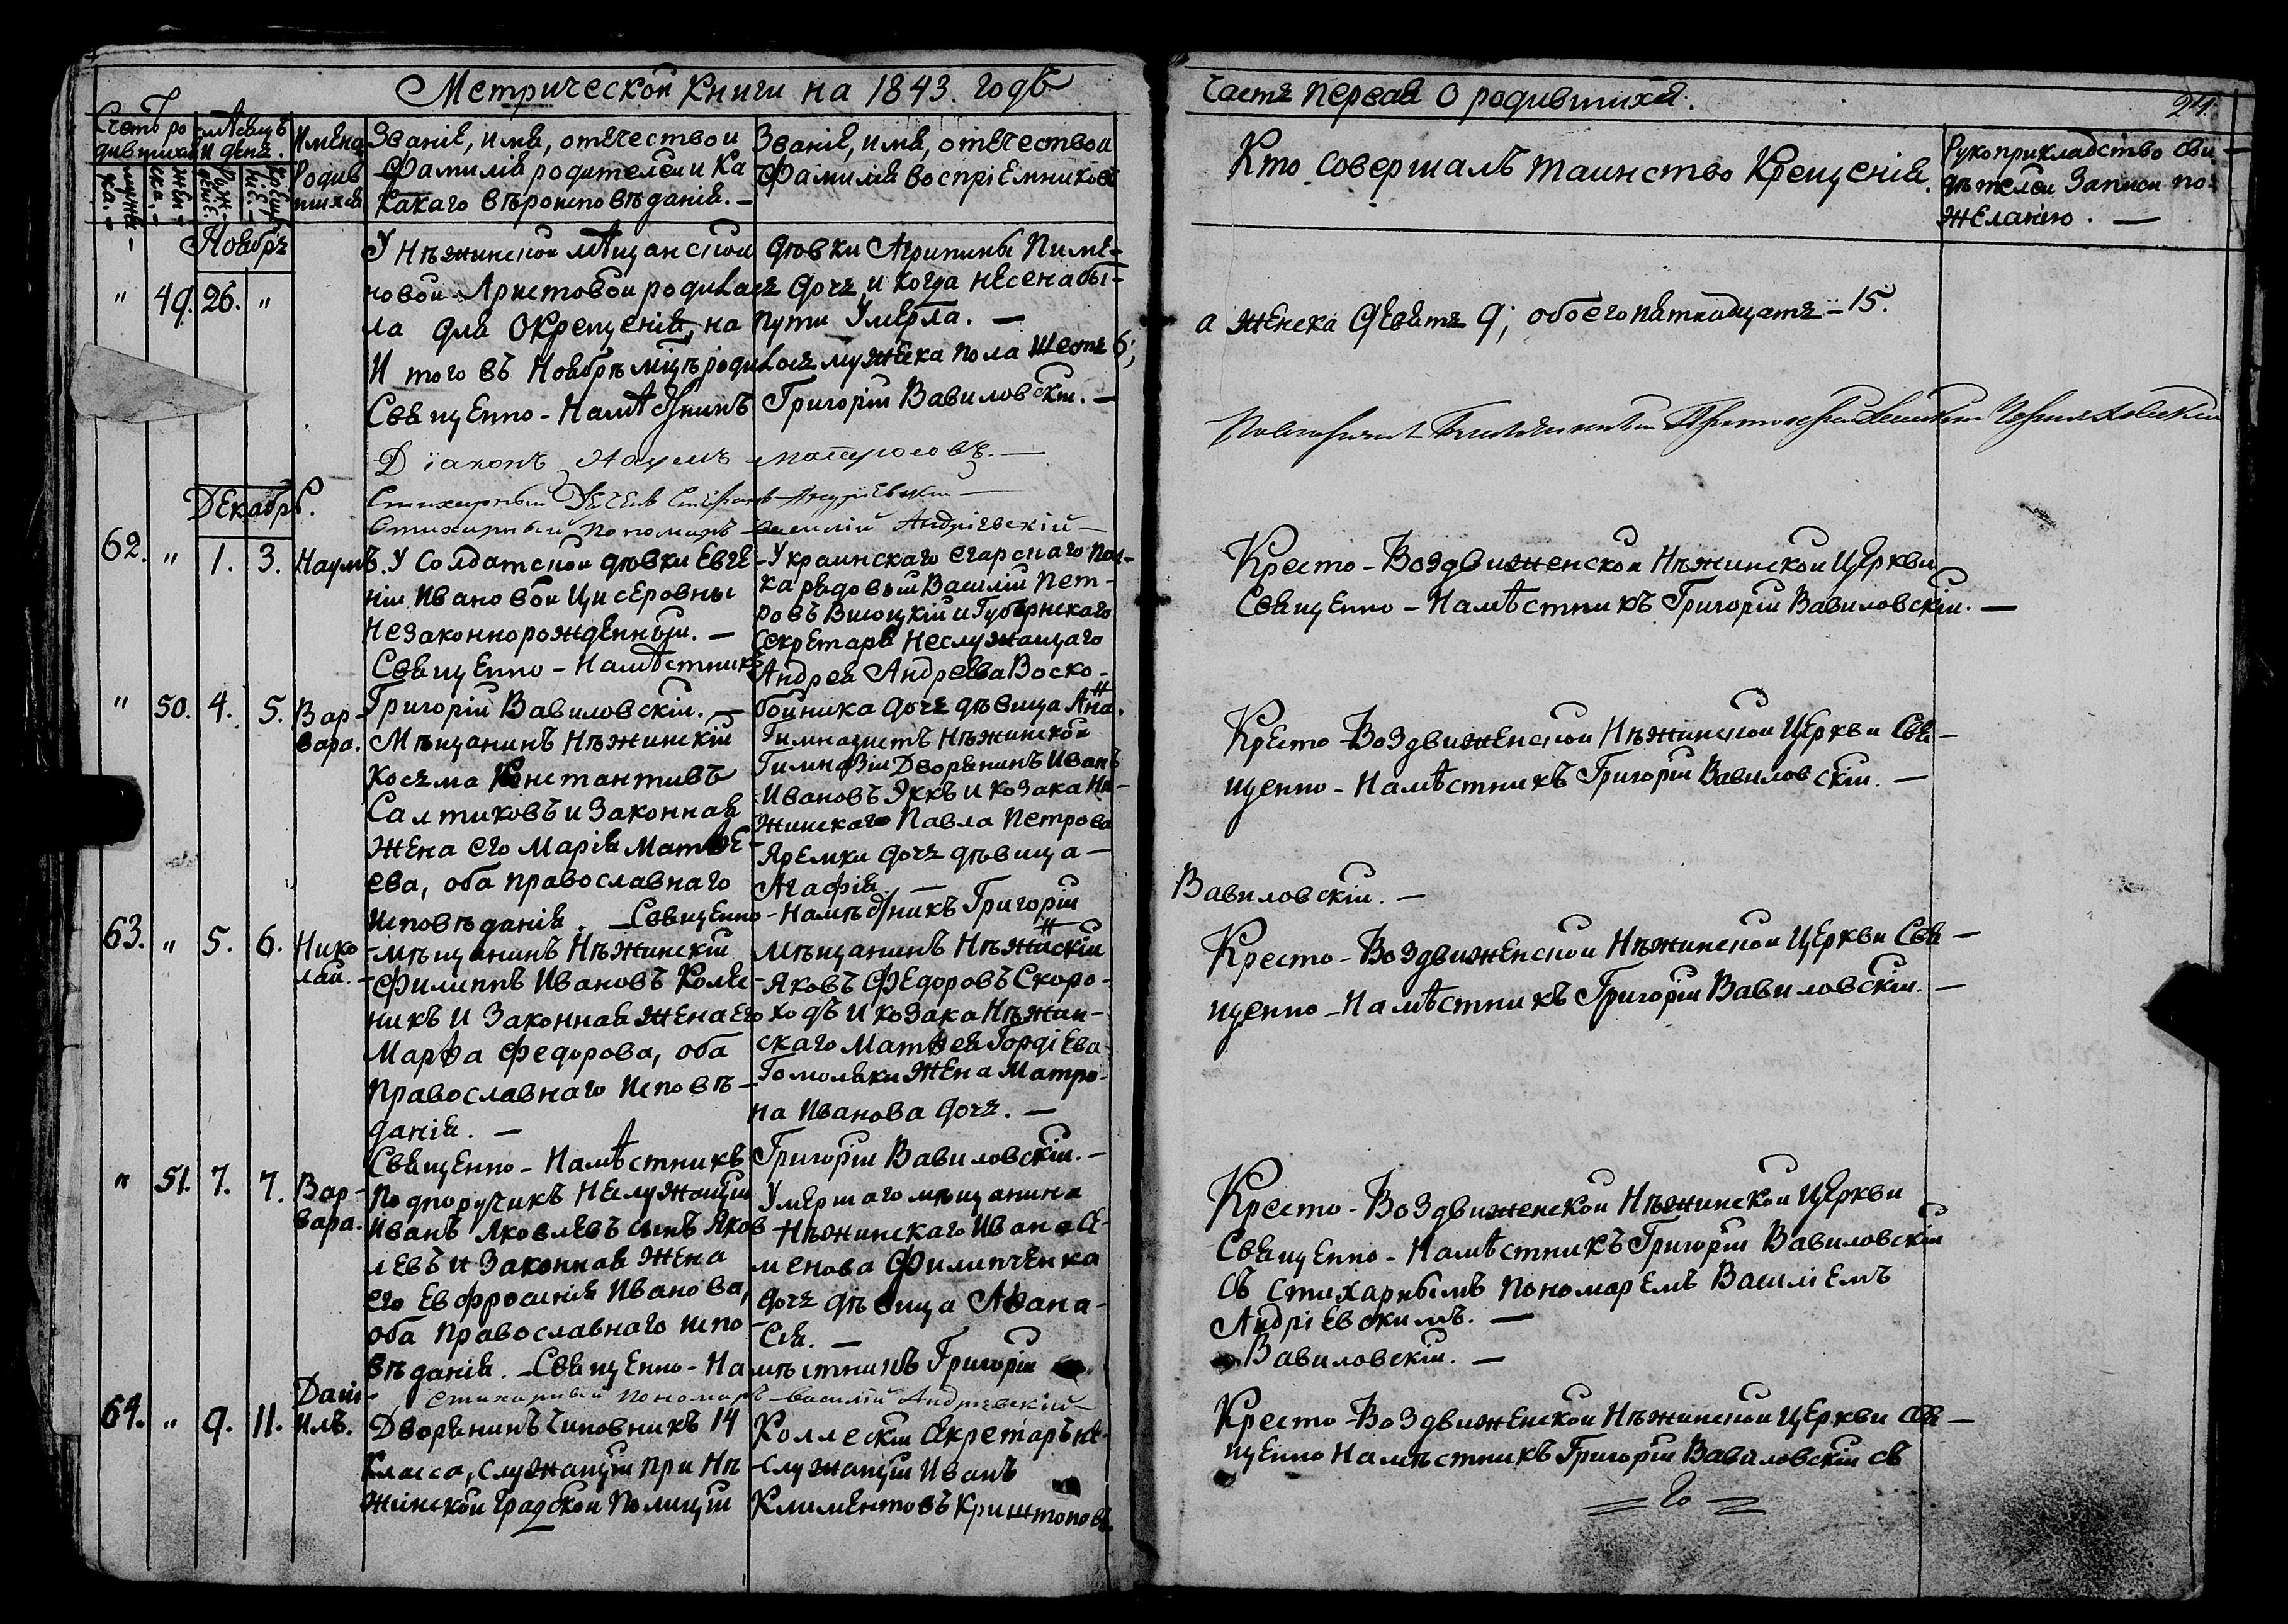 Метрической Книги на 1843. годъ
Счетъ ро
дившихся
Мѣсяцъ
и день.
Имена
Родив
шихся
Званіе, имя, отечество и
Фамилія родителей и ка
какаго вѣроисповѣданія. —
Званіе, имя, отечество и
Фамилія воспріемниковъ
Ноябрь
" 49. 26. "
У Нѣжинской мѣщанской дѣвки Агрипины Пиме-
новой Аристовой родилась дочь и когда несена бы-
ла для окрещенія, на пути умерла. —
И того въ Ноябрѣ мцѣ родилось мужеска пола шесть 6;
Священно-Намѣстникъ Григорій Вавиловскій. —
Діаконъ Наумъ Матросовъ. —
Стихарный Стефанъ Андріевскій —
Стихарный Пономарь Василій Андріевскій —
Декабрь.
62. " 1. 3. Наумъ.
У Солдатской дѣвки Евге
ніи Ивановой Цисеровны
Незаконнорожденный. —
Священно-Намѣстникъ
Григорій Вавиловскій. —
Украинскаго егарскаго пол-
ка рядовый Василій Пет-
ровъ Висоцкій и Губернскаго
Секретаря Неслужащаго
Андрея Андреева Воско-
бойника дочь дѣвица Анна.
" 50. 4. 5. Вар-
вара.
Мѣщанинъ Нѣжинскій
Козьма Константиновъ
Салтиковъ и Законная
жена его Марія Матѳе-
ева, оба православнаго
исповѣданія. — Священно-Намѣстникъ Григорій
Гимназистъ Нѣжинской
Гимназіи Дворянинъ Иванъ
Ивановъ Эккъ и козака Нѣ-
жинскаго Павла Петрова
Яремки дочь дѣвица —
Агафія. —
63. " 5. 6. Нико
лай.
Мѣщанинъ Нѣжинскій
Филиппъ Ивановъ Коле-
никъ и Законная жена его
Марѳа Федорова, оба
Православнаго исповѣ-
данія. —
Мѣщанинъ Нѣжинскій
Яковъ Федоровъ Скоро-
ходъ и козака Нѣжин-
скаго Матѳея Гордіева
Гомоляки жена Матро-
на Иванова дочь. —
Священно-Намѣстникъ Григорій Вавиловскій. —
" 51. 7. 7. Вар-
вара.
Подпоручикъ Неслужащій
Иванъ Яковлевъ сынъ Яков
левъ и Законная жена
его Евфросинія Иванова,
оба православнаго испо
вѣданія. — Священно-Намѣстникъ Григорій
Умершаго мѣщанина
Нѣжинскаго Ивана Се-
менова Филипченка
дочь дѣвица Аѳана-
сія. —
Стихарный пономарь Василій Андріевскій —
64. " 9. 11. Дані-
илъ.
Дворянинъ Чиновникъ 14
Класса, служащій при Нѣ
жинской градской Полиціи
Коллескій Секретарь не-
служащій Иванъ
Климентовъ Криштоповъ
Часть первая о родившихся.
24.
Кто совершалъ таинство Крещенія.
Рукоприкладство сви-
дѣтелей Записи по-
желанію. —
а женска девять 9; обоего пятнадцать — 15.
Кресто-Воздвиженской Нѣжинской Церкви
Священно-Намѣстникъ Григорій Вавиловскій. —
Кресто-Воздвиженской Нѣжинской Церкви Свя-
щенно-Намѣстникъ Григорій Вавиловскій. —
Вавиловскій. —
Кресто-Воздвиженской Нѣжинской Церкви Свя-
щенно-Намѣстникъ Григорій Вавиловскій. —
Кресто-Воздвиженской Нѣжинской Церкви
Священно-Намѣстникъ Григорій Вавиловскій
съ стихарнымъ пономаремъ Василіемъ
Андріевскимъ. —
Вавиловскій. —
Кресто-Воздвиженской Нѣжинской Церкви Свя-
щенно Намѣстникъ Григорій Вавиловскій съ